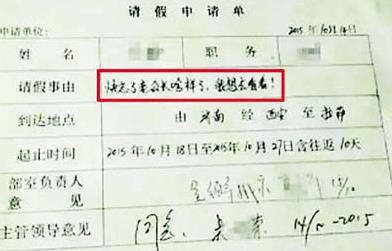 请假申请单
申请单位: 2015年10月14日
姓名 职务
请假事由 快忘了老公长啥样了,我想去看看!
到达地点 由济南经西安至拉萨
起止时间 2015年10月18日至2015年10月27日含往返10天
部室负责人意见
主管领导意见 同意、 14/10-2015